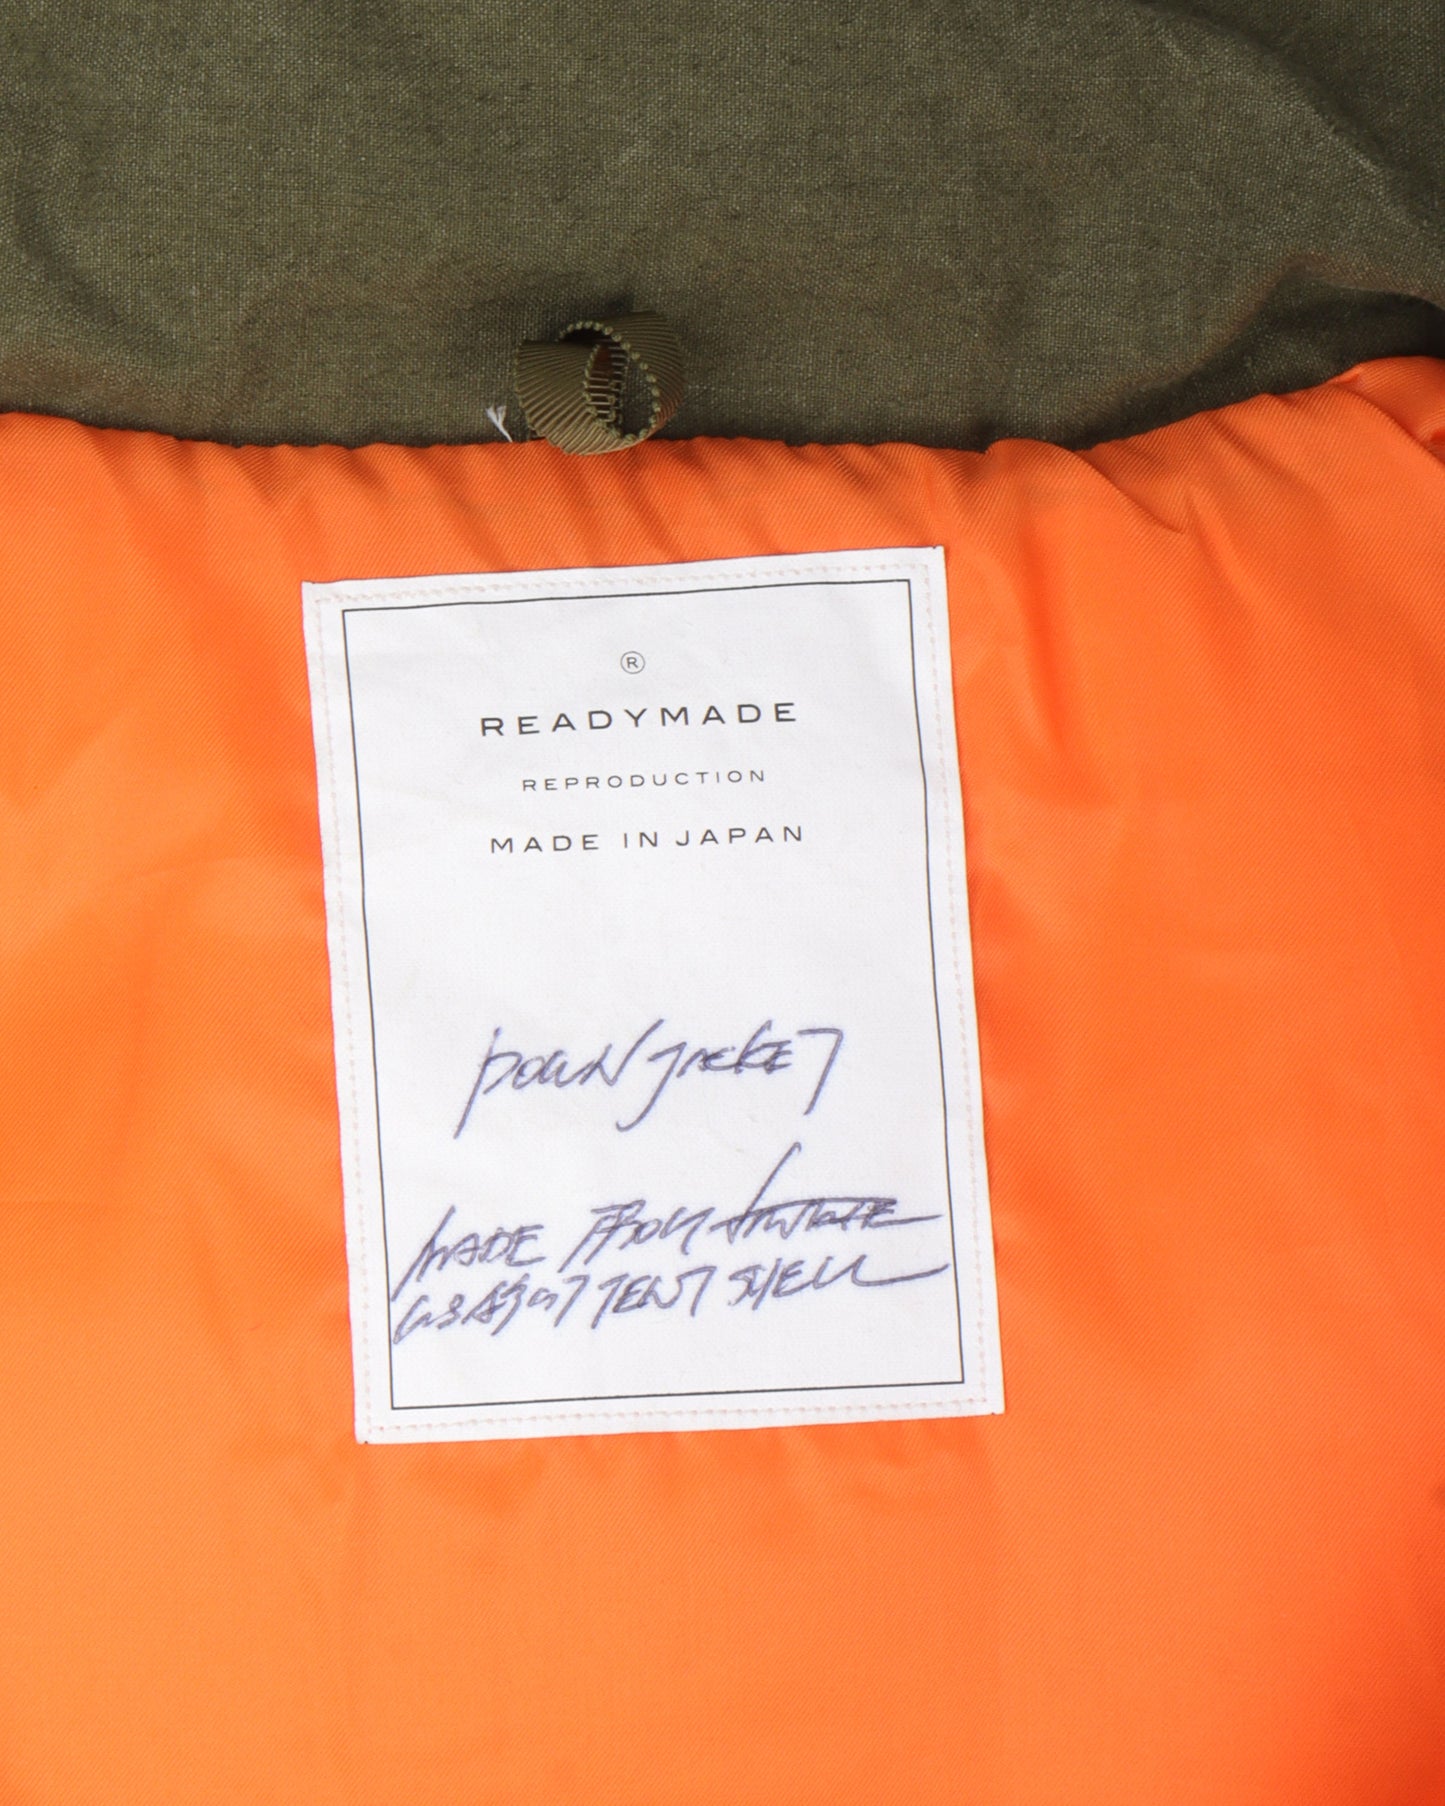 ®
READYMADE
REPRODUCTION
MADE IN JAPAN
DOWN JACKET
MADE FROM
TENT SHELL